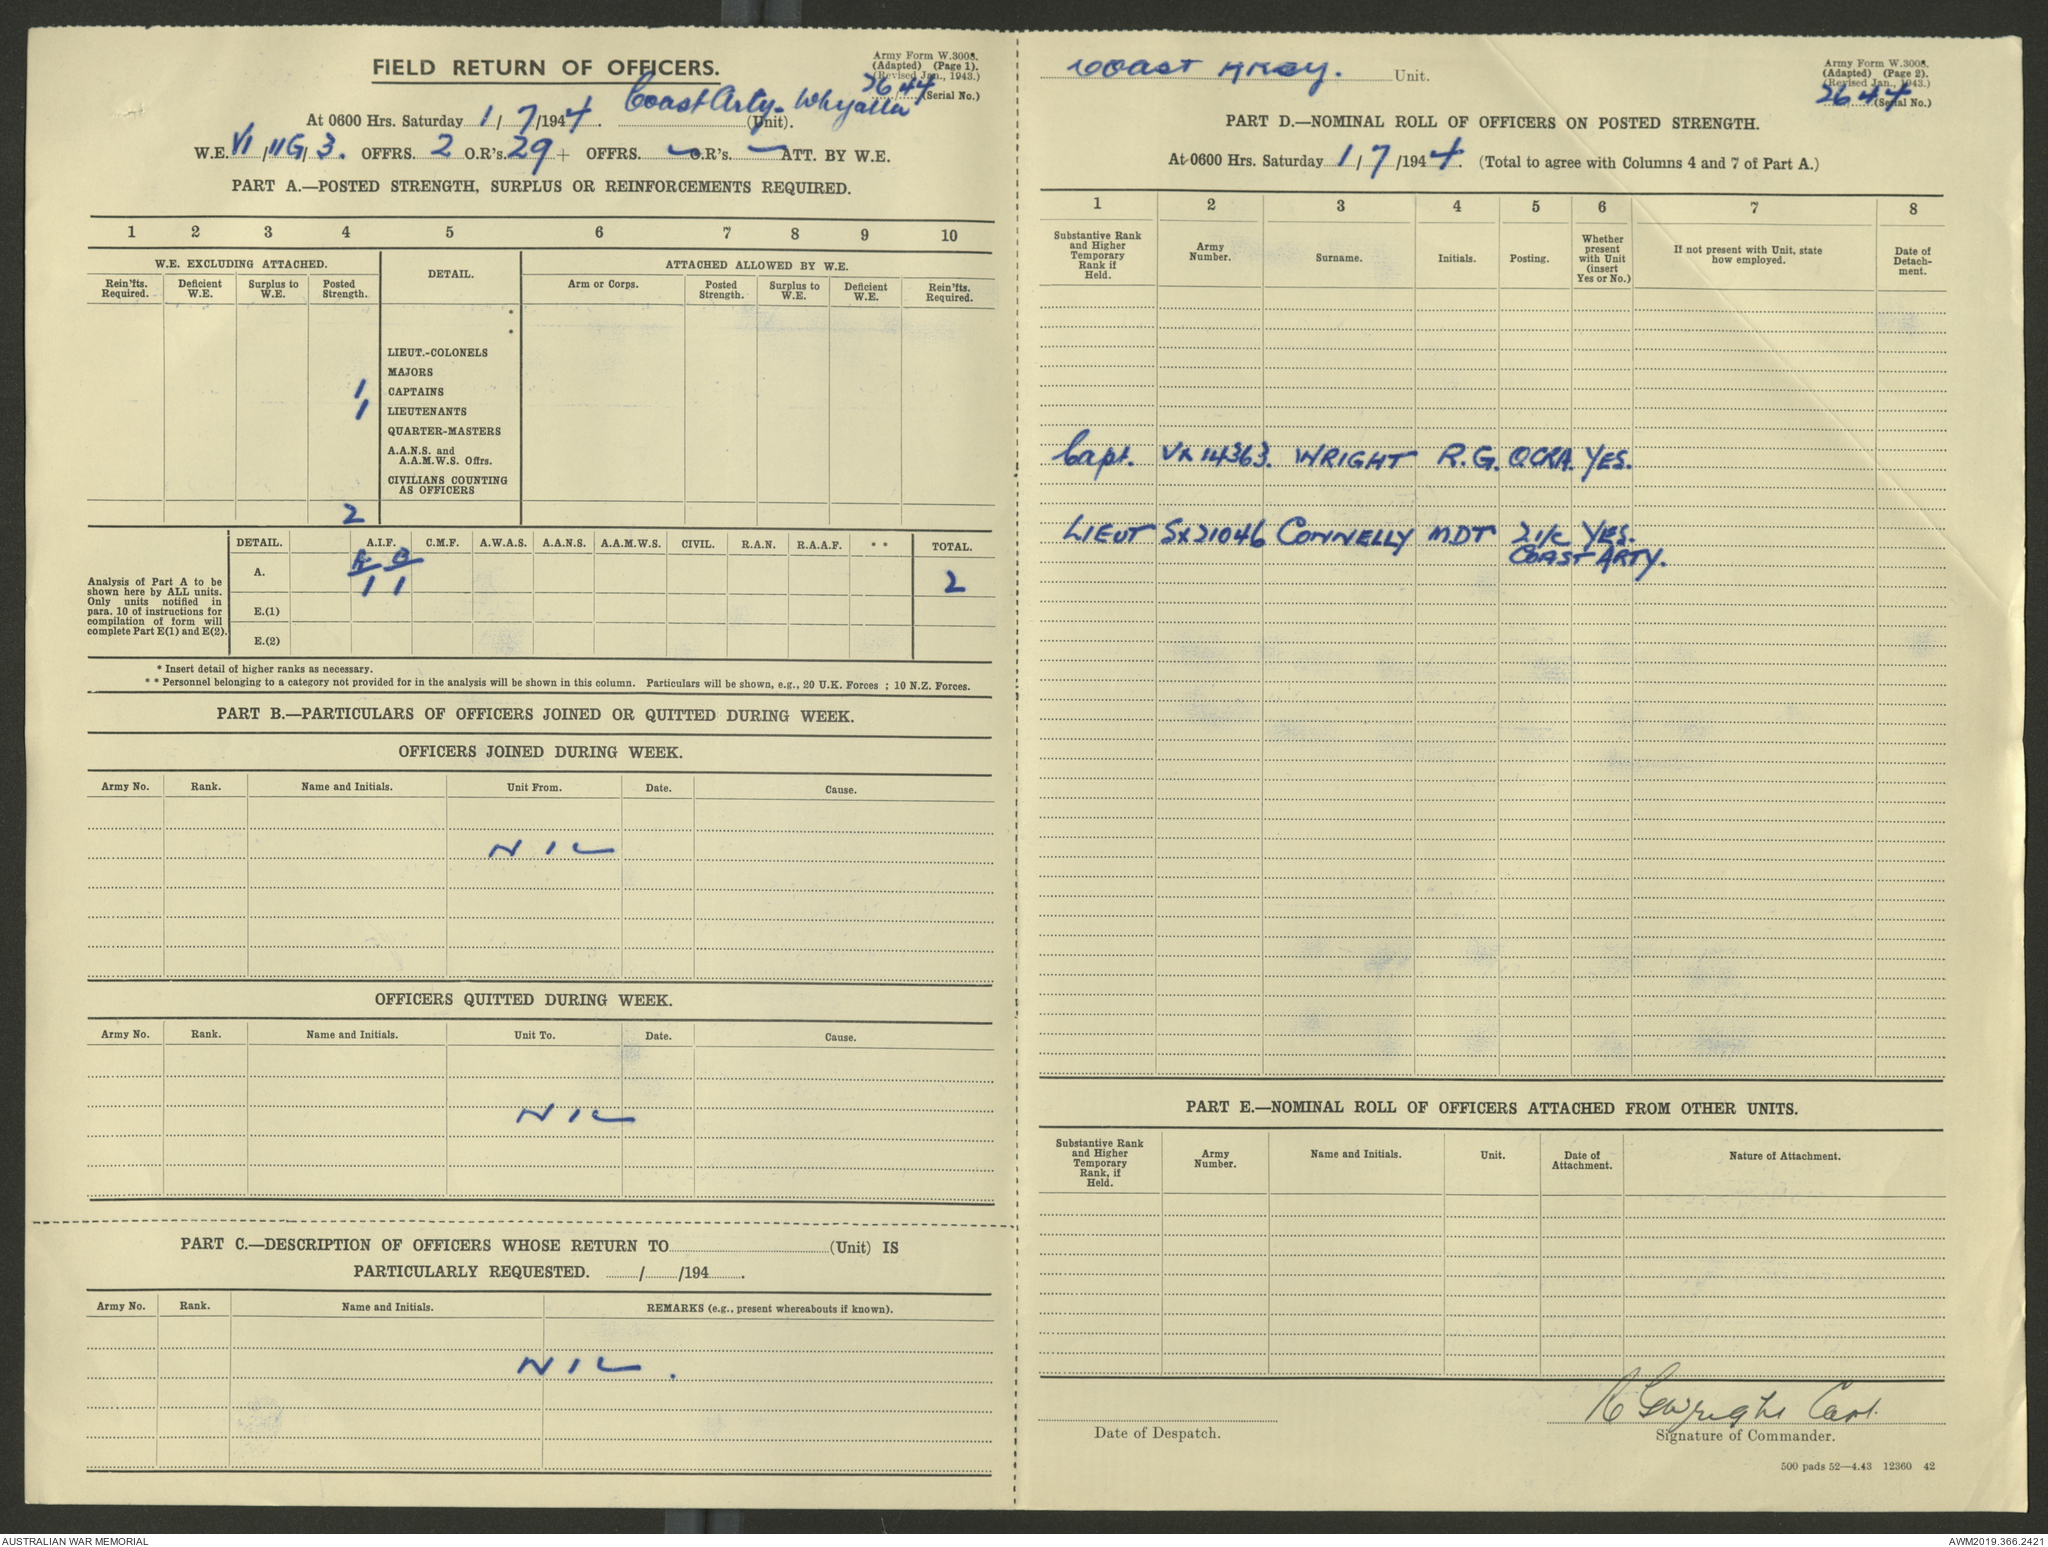 FIELD RETURN OF OFFICERS.
Army Form W.3008.
(Adapted) (Page 1).
(Revised Jan., 1943.)
26/44 (Serial No.)
At 0600 Hrs. Saturday 1/7/1944. Coast Arty. Whyalla (Unit).
W.E. VI/IIG/3. OFFRS. 2 O.R's. 29 + OFFRS. – O.R's. – ATT. BY W.E.
PART A.—POSTED STRENGTH, SURPLUS OR REINFORCEMENTS REQUIRED.
1 2 3 4 5 6 7 8 9 10
W.E. EXCLUDING ATTACHED. DETAIL. ATTACHED ALLOWED BY W.E.
Rein'fts. Required. Deficient W.E. Surplus to W.E. Posted Strength. Arm or Corps. Posted Strength. Surplus to W.E. Deficient W.E. Rein'fts. Required.
*
*
LIEUT.-COLONELS
MAJORS
1 CAPTAINS
1 LIEUTENANTS
QUARTER-MASTERS
A.A.N.S. and
A.A.M.W.S. Offrs.
CIVILIANS COUNTING
AS OFFICERS
2
DETAIL. A.I.F. C.M.F. A.W.A.S. A.A.N.S. A.A.M.W.S. CIVIL. R.A.N. R.A.A.F. * * TOTAL.
Analysis of Part A to be
shown here by ALL units.
Only units notified in
para. 10 of instructions for
compilation of form will
complete Part E(1) and E(2).
A. 1 1 2
E.(1)
E.(2)
* Insert detail of higher ranks as necessary.
* * Personnel belonging to a category not provided for in the analysis will be shown in this column. Particulars will be shown, e.g., 20 U.K. Forces ; 10 N.Z. Forces.
PART B.—PARTICULARS OF OFFICERS JOINED OR QUITTED DURING WEEK.
OFFICERS JOINED DURING WEEK.
Army No. Rank. Name and Initials. Unit From. Date. Cause.
NIL
OFFICERS QUITTED DURING WEEK.
Army No. Rank. Name and Initials. Unit To. Date. Cause.
NIL
PART C.—DESCRIPTION OF OFFICERS WHOSE RETURN TO (Unit) IS
PARTICULARLY REQUESTED. / /194 .
Army No. Rank. Name and Initials. REMARKS (e.g., present whereabouts if known).
NIL.
Coast Arty. Unit.
Army Form W.3008.
(Adapted) (Page 2).
(Revised Jan., 1943.)
26/44 (Serial No.)
PART D.—NOMINAL ROLL OF OFFICERS ON POSTED STRENGTH.
At 0600 Hrs. Saturday 1/7/1944. (Total to agree with Columns 4 and 7 of Part A.)
1 2 3 4 5 6 7 8
Substantive Rank and Higher Temporary Rank if Held. Army Number. Surname. Initials. Posting. Whether present with Unit (insert Yes or No.) If not present with Unit, state how employed. Date of Detach-ment.
Capt. VX14363. WRIGHT R.G. OCRA. YES.
LIEUT SX21046 CONNELLY MDT 2i/c YES.
COAST ARTY.
PART E.—NOMINAL ROLL OF OFFICERS ATTACHED FROM OTHER UNITS.
Substantive Rank and Higher Temporary Rank, if Held. Army Number. Name and Initials. Unit. Date of Attachment. Nature of Attachment.
R G Wright Capt.
Date of Despatch. Signature of Commander.
500 pads 52—4.43 12360 42
AUSTRALIAN WAR MEMORIAL AWM2019.366.2421